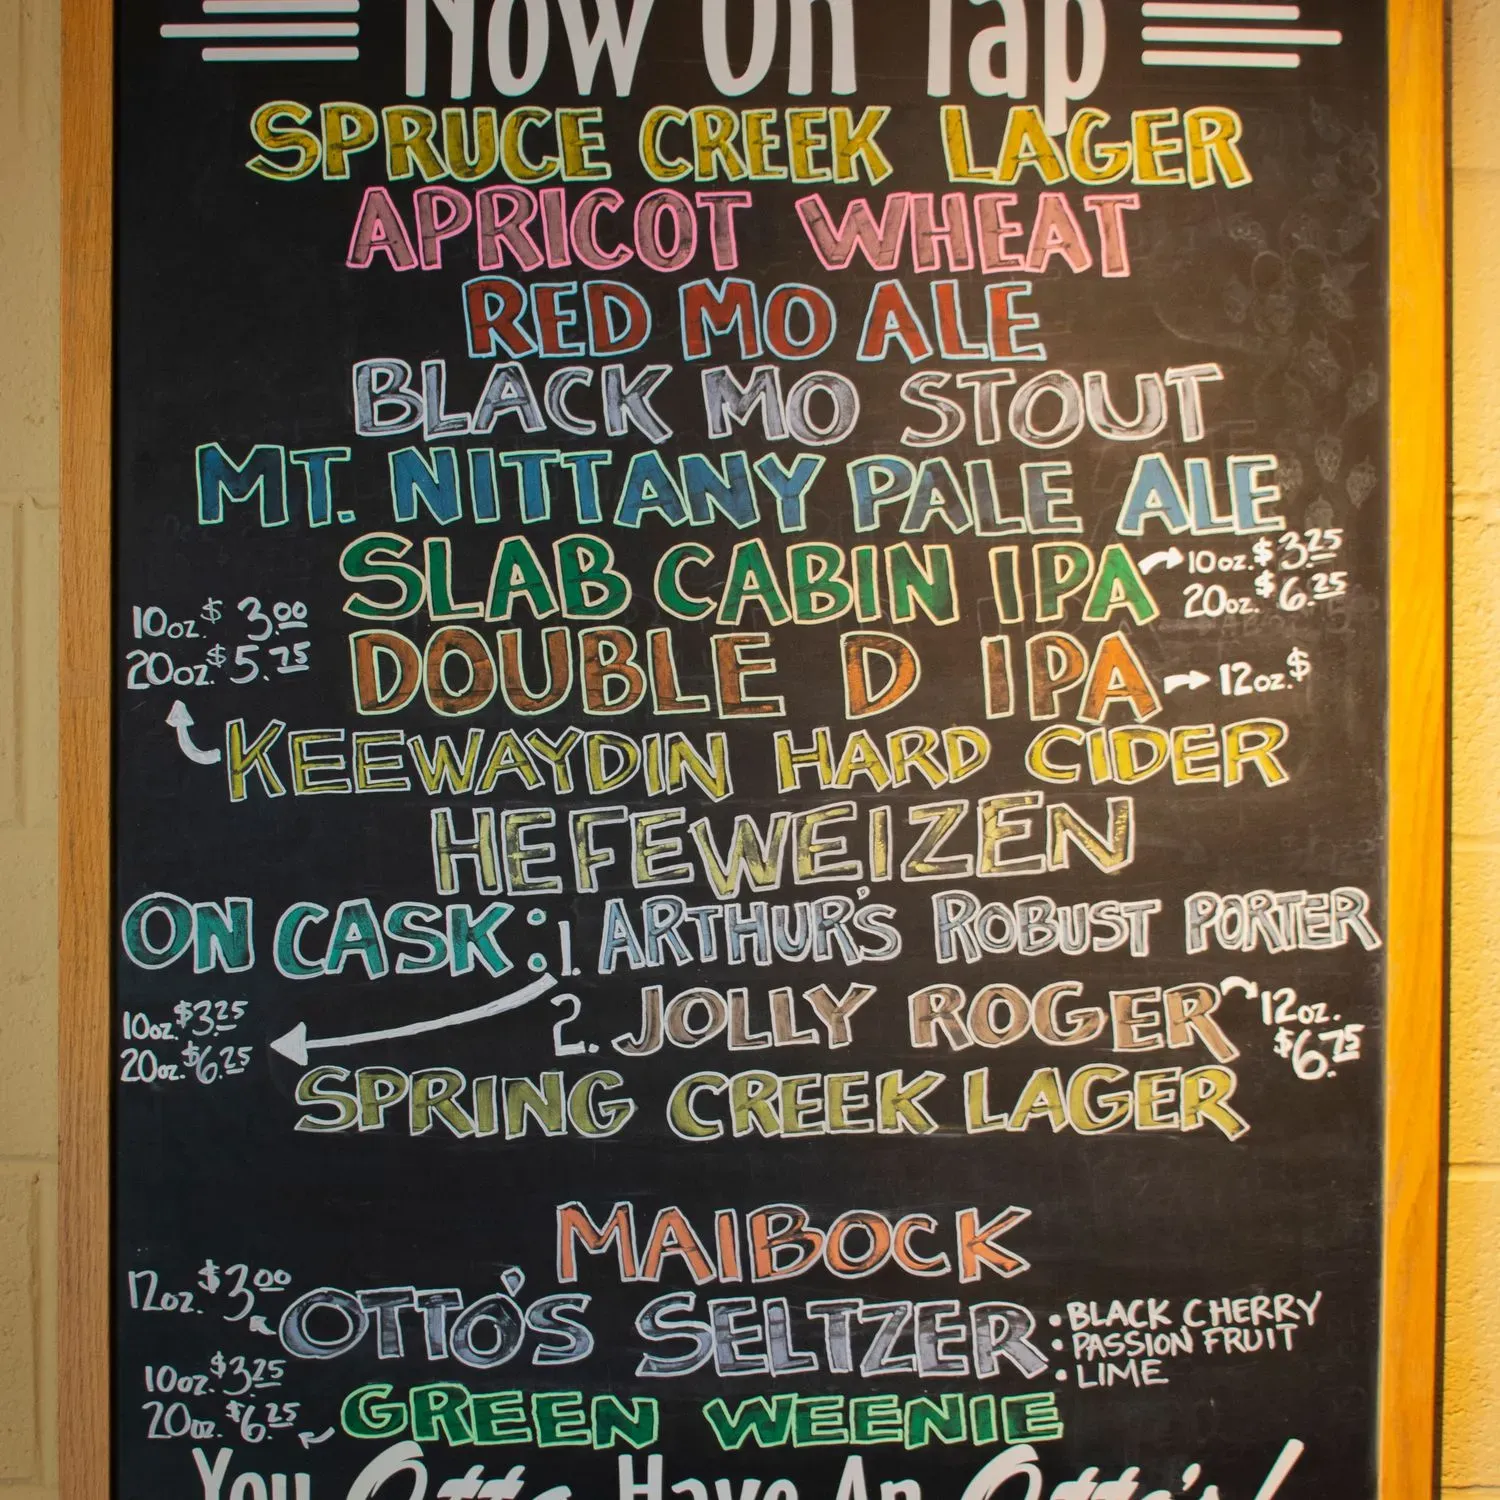 Now On Tap
SPRUCE CREEK LAGER
APRICOT WHEAT
RED MO ALE
BLACK MO STOUT
MT. NITTANY PALE ALE
SLAB CABIN IPA
10oz. $3.25
20oz. $6.25
DOUBLE D IPA
12oz. $
10oz. $3.00
20oz. $5.75
KEEWAYDIN HARD CIDER
HEFEWEIZEN
ON CASK: 1. ARTHUR'S ROBUST PORTER
10oz. $3.25
20oz. $6.25
2. JOLLY ROGER
12oz.
$6.75
SPRING CREEK LAGER
MAIBOCK
12oz. $3.00
OTTO'S SELTZER
• BLACK CHERRY
• PASSION FRUIT
• LIME
10oz. $3.25
20oz. $6.25
GREEN WEENIE
You Otto Have An Otto's!